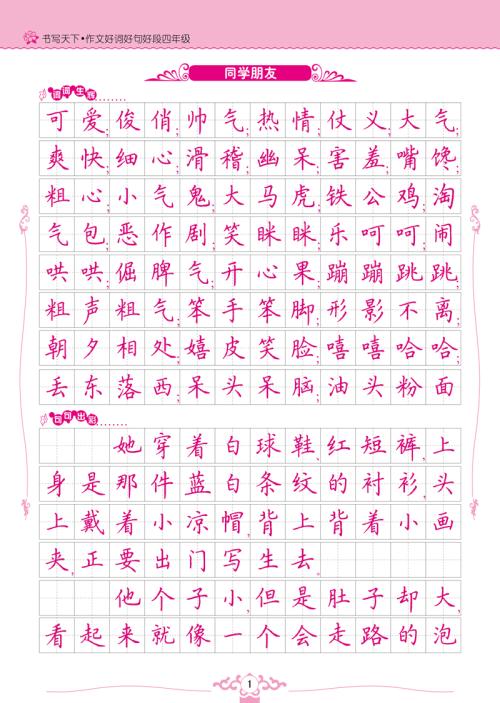 书写天下•作文好词好句好段四年级
同学朋友
词词生辉
可爱;俊俏;帅气;热情;仗义;大气;
爽快;细心;滑稽;幽呆;害羞;嘴馋;
粗心;小气鬼;大马虎;铁公鸡;淘
气包;恶作剧;笑眯眯;乐呵呵;闹
哄哄;倔脾气;开心果;蹦蹦跳跳;
粗声粗气;笨手笨脚;形影不离;
朝夕相处;嬉皮笑脸;嘻嘻哈哈;
丢东落西;呆头呆脑;油头粉面
句句出彩
她穿着白球鞋,红短裤,上
身是那件蓝白条纹的衬衫,头
上戴着小凉帽,背上背着小画
夹,正要出门写生去。
他个子小,但是肚子却大,
看起来就像一个会走路的泡
1